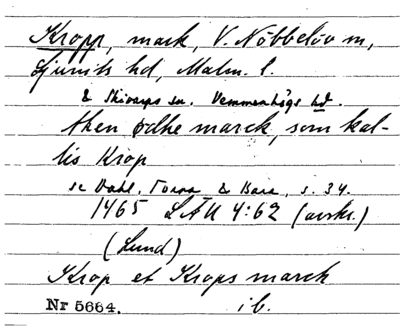 Kropp, mark, V. Nöbbelöv sn,
Ljunits hd, Malm. l.
& Skivarps sn. Vemmenhögs hd.
then ödhe marck, som kal-
lis Krop
se Dahl, Torna & Bara, s. 34.
1465 LÄU 4:62 (avskr.)
(Lund)
Krop et Krops marck
Nr 5664. ib.